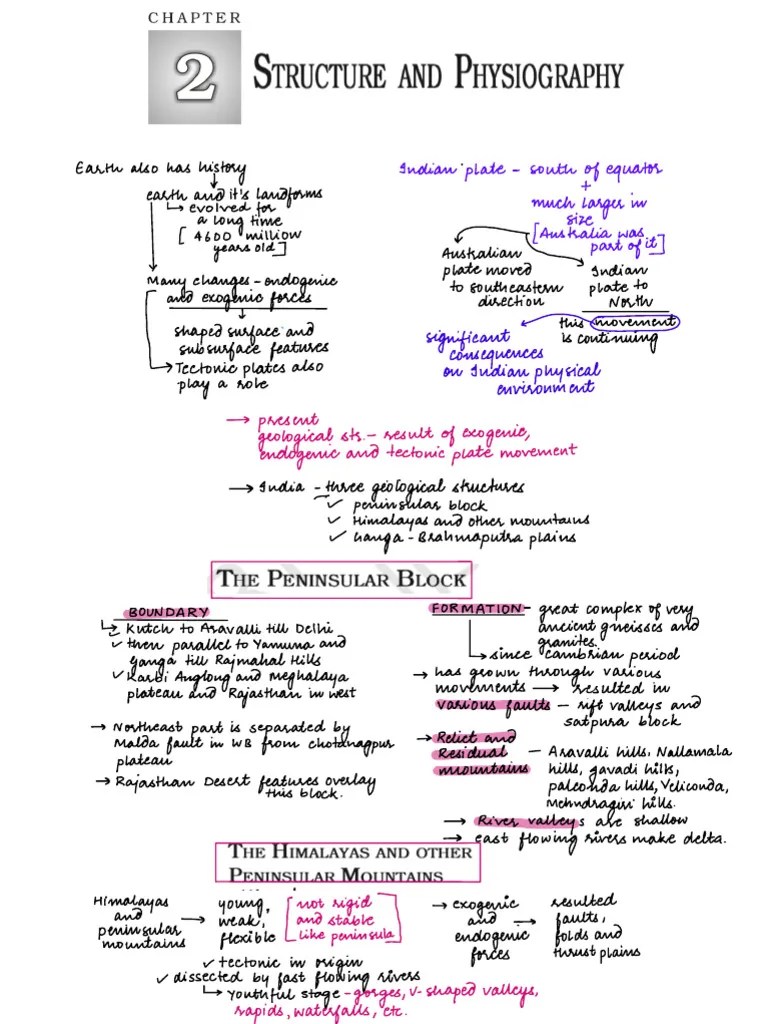 CHAPTER
2
STRUCTURE AND PHYSIOGRAPHY
Earth also has history
earth and it's landforms
evolved for
a long time
[ 4600 million
years old ]
Many changes - endogenic
and exogenic forces
shaped surface and
subsurface features
Tectonic plates also
play a role
Indian plate - south of equator
+
much larger in
size
[Australia was
part of it]
Australian
plate moved
to southeastern
direction
Indian
plate to
North
this movement
is continuing
significant
consequences
on Indian physical
environment
→ present
geological sts. - result of exogenic,
endogenic and tectonic plate movement
→ India - three geological structures
✓ peninsular block
✓ Himalayas and other mountains
✓ Ganga - Brahmaputra plains
THE PENINSULAR BLOCK
BOUNDARY
Kutch to Aravalli till Delhi
✓ then parallel to Yamuna and
Ganga till Rajmahal Hills
✓ Karbi Anglong and Meghalaya
plateau and Rajasthan in west
→ Northeast part is separated by
Malda fault in WB from chotanagpur
plateau
→ Rajasthan Desert features overlay
this block.
FORMATION - great complex of very
ancient gneisses and
granites.
since cambrian period
→ has grown through various
movements → resulted in
various faults - rift valleys and
satpura block
→ Relict and
Residual
mountains
- Aravalli hills, Nallamala
hills, gavadi hills,
palconda hills, Veliconda,
Mehndragiri hills.
→ River valleys are shallow
→ east flowing rivers make delta.
THE HIMALAYAS AND OTHER
PENINSULAR MOUNTAINS
Himalayas
and
peninsular
mountains
→ young,
weak,
flexible
[not rigid
and stable
like peninsula]
→ exogenic
and
endogenic
forces
→ resulted
faults,
folds and
thrust plains
✓ tectonic in origin
✓ dissected by fast flowing rivers
youthful stage - gorges, V-shaped valleys,
rapids, waterfalls, etc.